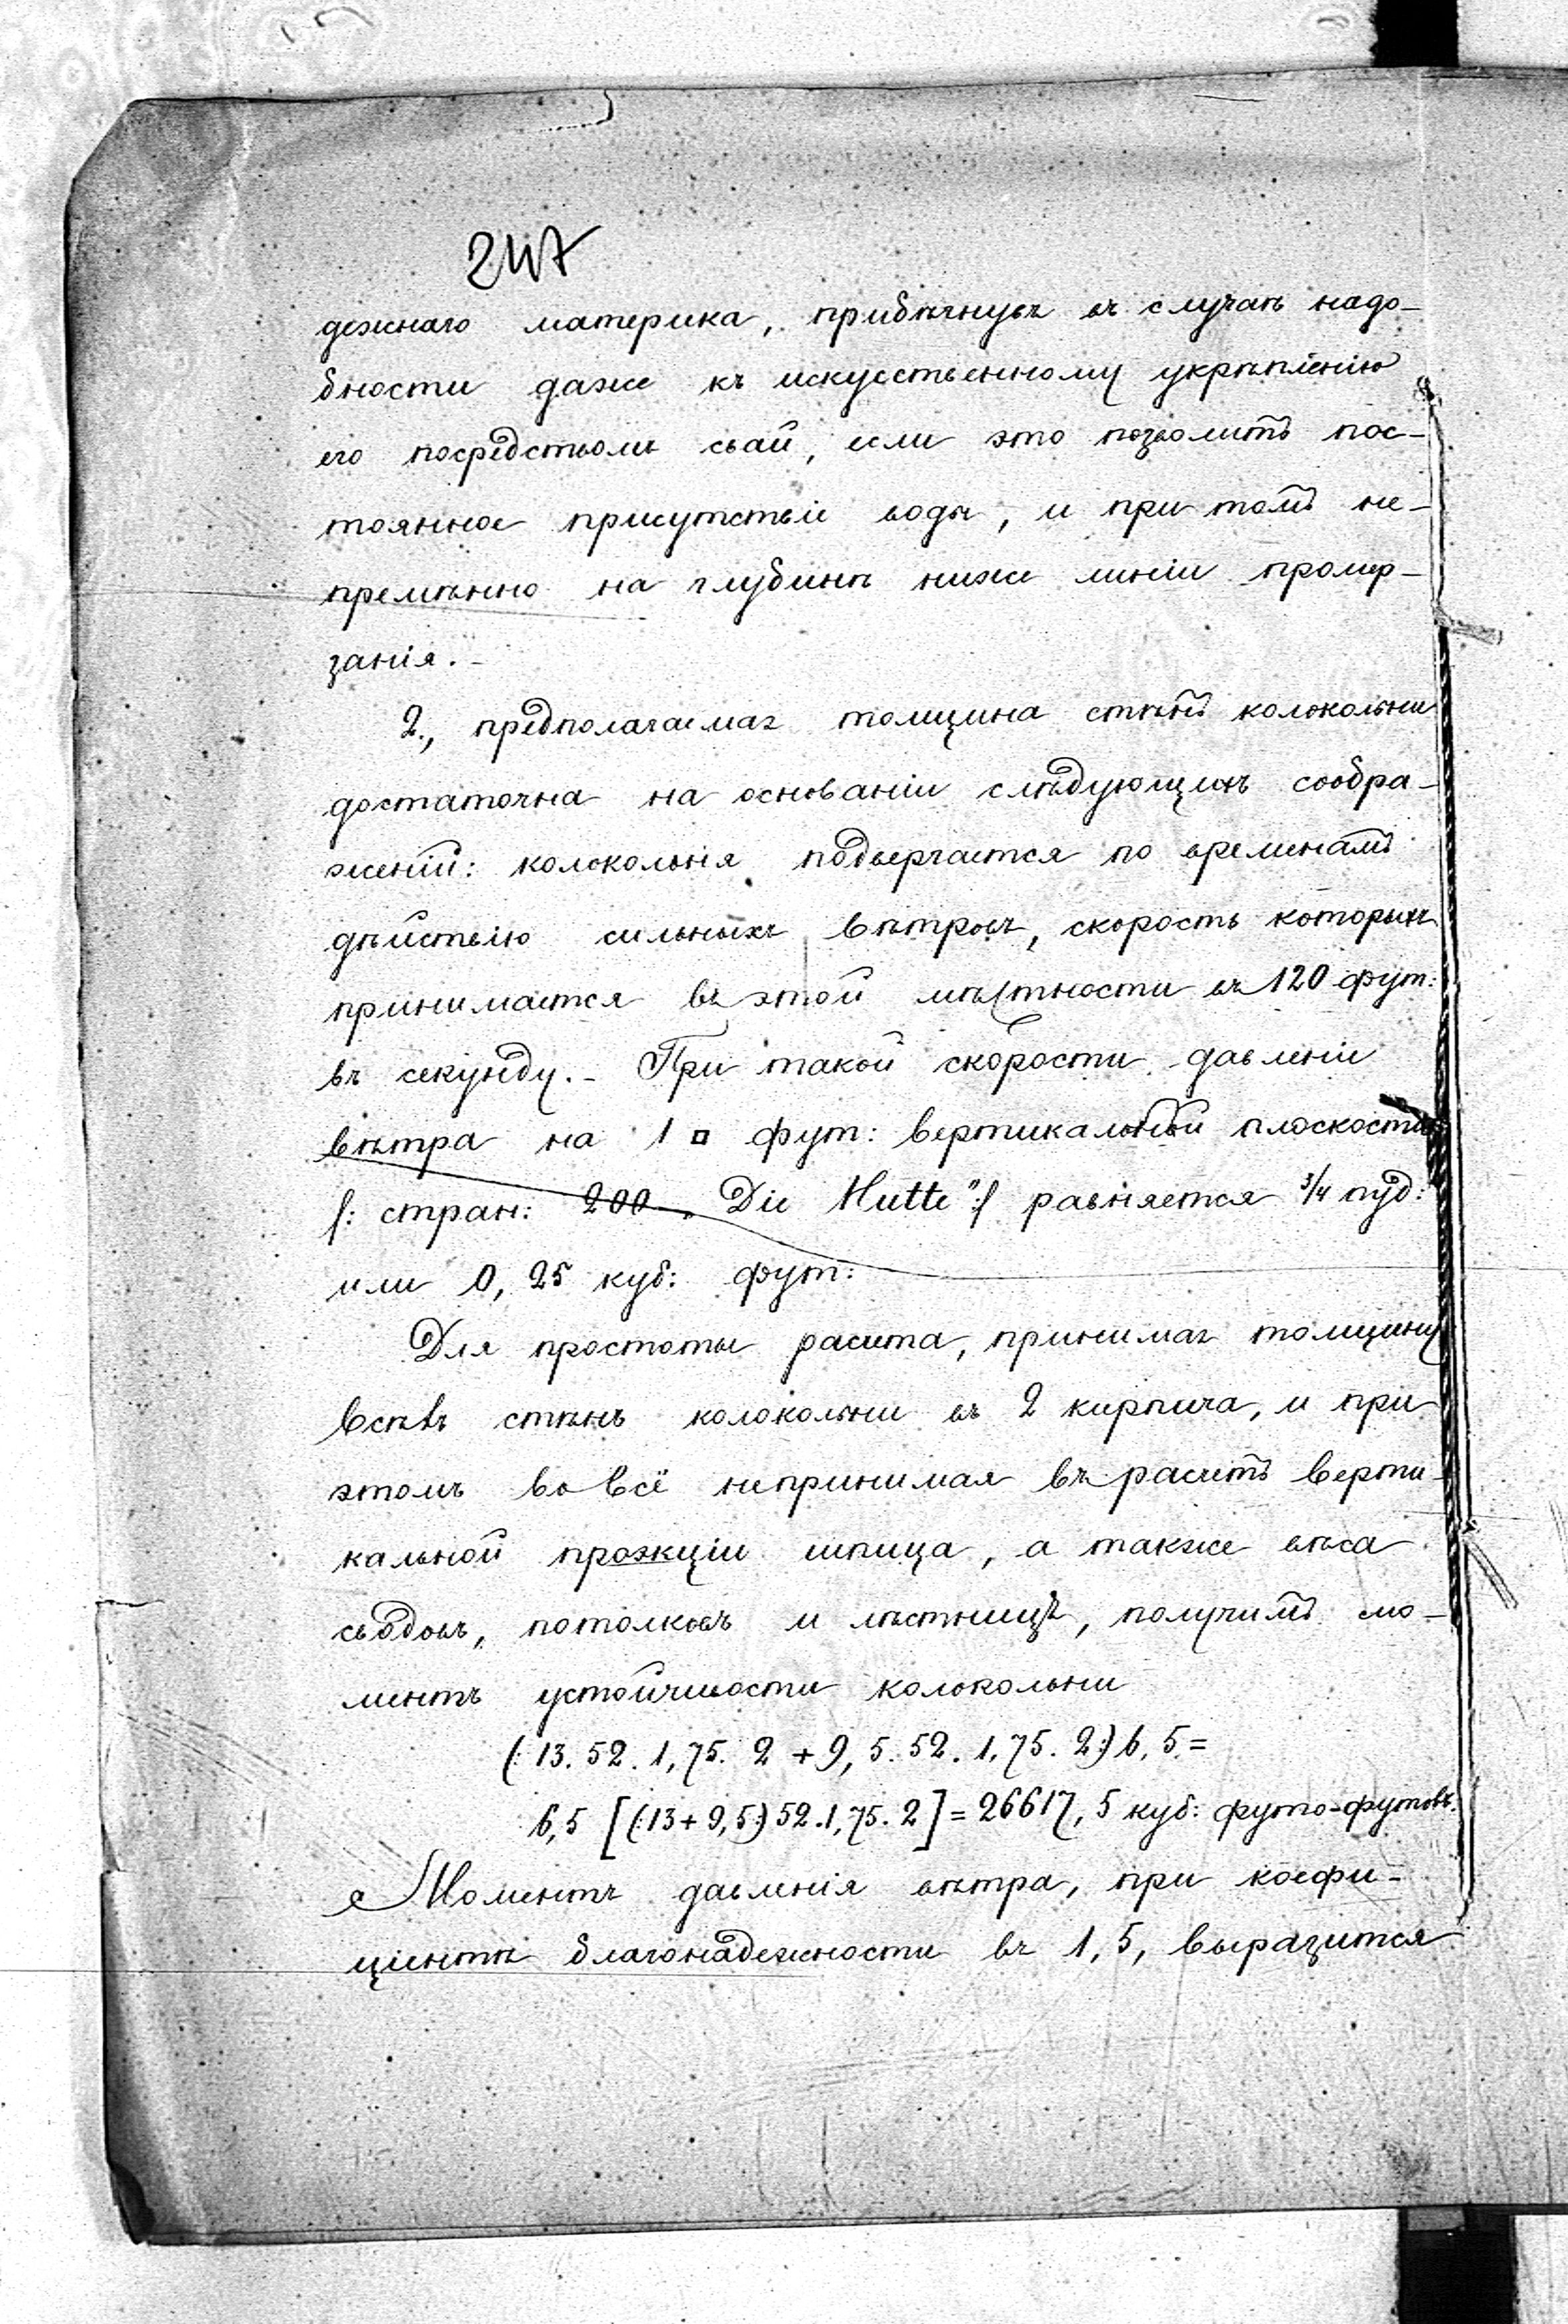 247
дежнаго материка, прибѣгнувъ въ случаѣ надо-
бности даже къ искусственному укрѣпленію
его посредствомъ свай, если это позволитъ пос-
тоянное присутствіе воды, и при томъ не-
премѣнно на глубинѣ ниже линіи промер-
занія. -
2., предполагаемая толщина стѣнъ колокольни
достаточна на основаніи слѣдующихъ сообра-
женій: колокольня подвергается по временамъ
дѣйствію сильныхъ вѣтровъ, скорость которыхъ
принимается въ этой мѣстности въ 120 фут:
въ секунду. - При такой скорости давленіе
вѣтра на 1 □ фут: вертикальной плоскости
/: стран: 200 „Die Hutte":/ равняется 3/4 пуд:
или 0,25 куб: фут:
Для простоты расчета, принимая толщину
всѣхъ стѣнъ колокольни въ 2 кирпича, и при
этомъ во всё непринимая въ расчетъ верти-
кальной проэкціи шпица, а также вѣса
сводовъ, потолковъ и лѣстницъ, получимъ мо-
ментъ устойчивости колокольни
(: 13. 52. 1,75. 2 + 9,5. 52. 1,75. 2:) 6,5 =
6,5 [(:13+9,5:) 52.1,75.2] = 26617,5 куб: футо-футовъ.
Моментъ давленія вѣтра, при коефи-
ціентѣ благонадежности въ 1,5, выразится